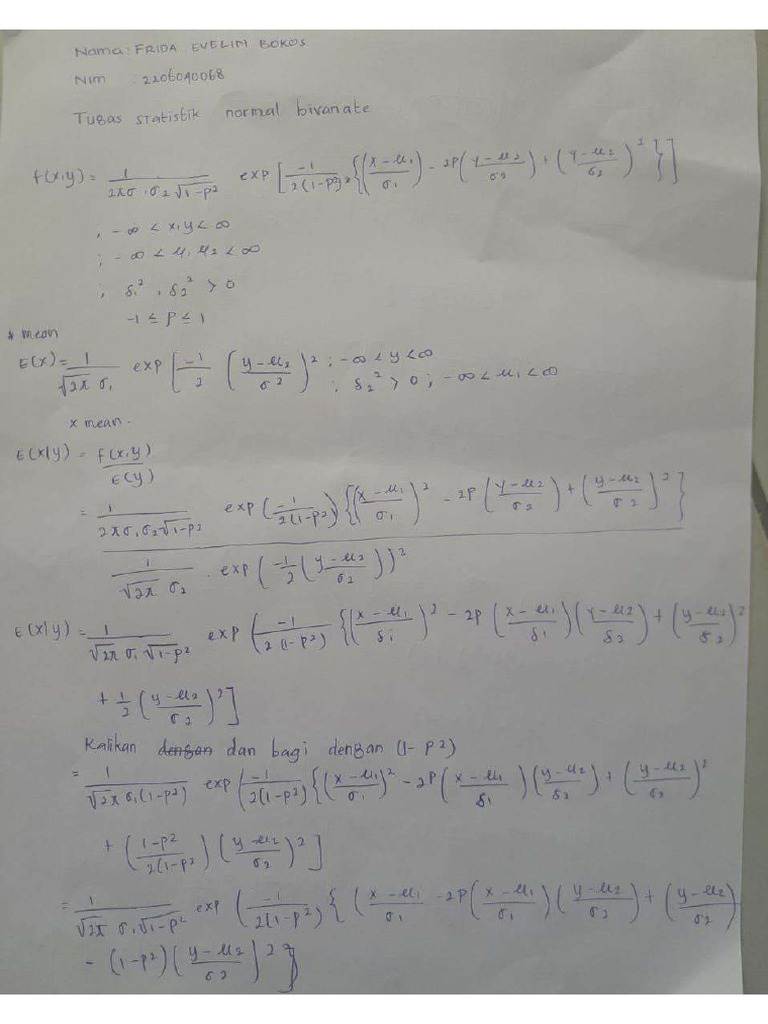 Nama: FRIDA EVELIN BOKOS
Nim : 2206040068
Tugas statistik normal bivariate
f(x,y) = 1 / (2πσ₁σ₂√1-p²) exp [ -1 / 2(1-p²)² { (x-μ₁ / σ₁) - 2p (y-μ₂ / σ₂) + (y-μ₂ / σ₂)² } ]
; -∞ < x,y < ∞
; -∞ < μ₁ μ₂ < ∞
; δ₁², δ₂² > 0
-1 ≤ p ≤ 1
* mean
E(x) = 1 / (√2π σ₁) exp [ -1 / 2 (y-μ₂ / σ2)² ; -∞ < y < ∞
; δ₂² > 0 ; -∞ < μ₁ < ∞
x mean.
E(x|y) = f(x,y) / E(y)
= 1 / (2πσ₁σ₂√1-p²) exp ( -1 / 2(1-p²) ) { (x-μ₁ / σ₁)² - 2p (y-μ₂ / σ₂) + (y-μ₂ / σ2)² }
1 / (√2π σ₂) . exp ( -1/2 (y-μ₂ / σ₂) )²
E(x|y) = 1 / (√2π σ₁ √1-p²) exp ( -1 / 2(1-p²) { (x-μ₁ / δ₁)² - 2p (x-μ₁ / δ₁) (y-μ2 / δ₂) + (y-μ₂ / δ₂)²
+ 1/2 (y-μ₂ / σ₂)² ]
Kalikan dengan dan bagi dengan (1-p²)
= 1 / (√2π σ₁(1-p²)) exp ( -1 / 2(1-p²) { (x-μ₁ / σ₁)² - 2p (x-μ₁ / δ₁) (y-μ₂ / δ₂) + (y-μ₂ / σ₂)²
+ (1-p² / 2(1-p²)) (y-μ₂ / σ₂)² ]
= 1 / (√2π σ₁√1-p²) exp ( -1 / 2(1-p²) { (x-μ₁ / σ₁ - 2p (x-μ₁ / σ₁) (y-μ₂ / σ₂) + (y-μ₂ / σ2)
- (1-p²) (y-μ₂ / σ₂)² ² }